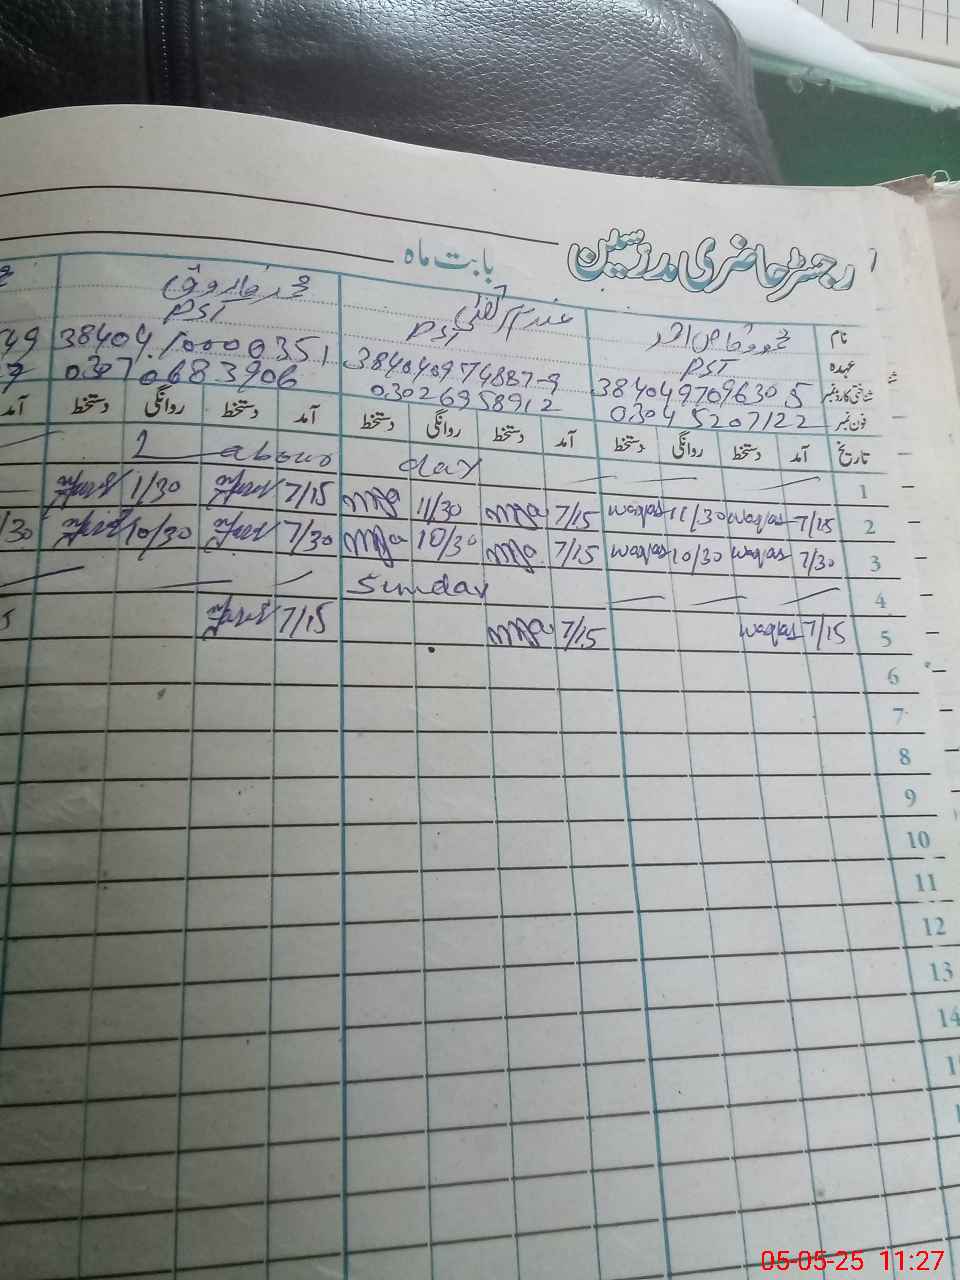 رجسٹر حاضری مدرسین
بابت ماہ
نام محمد وقاص احمد محمد فاروق
عہدہ PST PST PST
شناختی کارڈ نمبر 384049709630.5 3840409574887-9 38404.10000351 49
فون نمبر 03045207122 03026958912 03070683906
تاریخ آمد دستخط روانگی دستخط آمد دستخط روانگی دستخط آمد دستخط روانگی دستخط آمد
1 Labour day
2 7/15 waqas 11/30 waqas 7/15 11/30 7/15 1/30
3 7/30 waqas 10/30 waqas 7/15 10/30 7/30 10/30 /30
4 Sunday
5 7/15 waqas 7/15 7/15
6
7
8
9
10
11
12
13
14
05-05-25 11:27